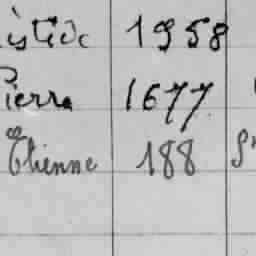 istide 1958
Pierre 1677
Etienne 188